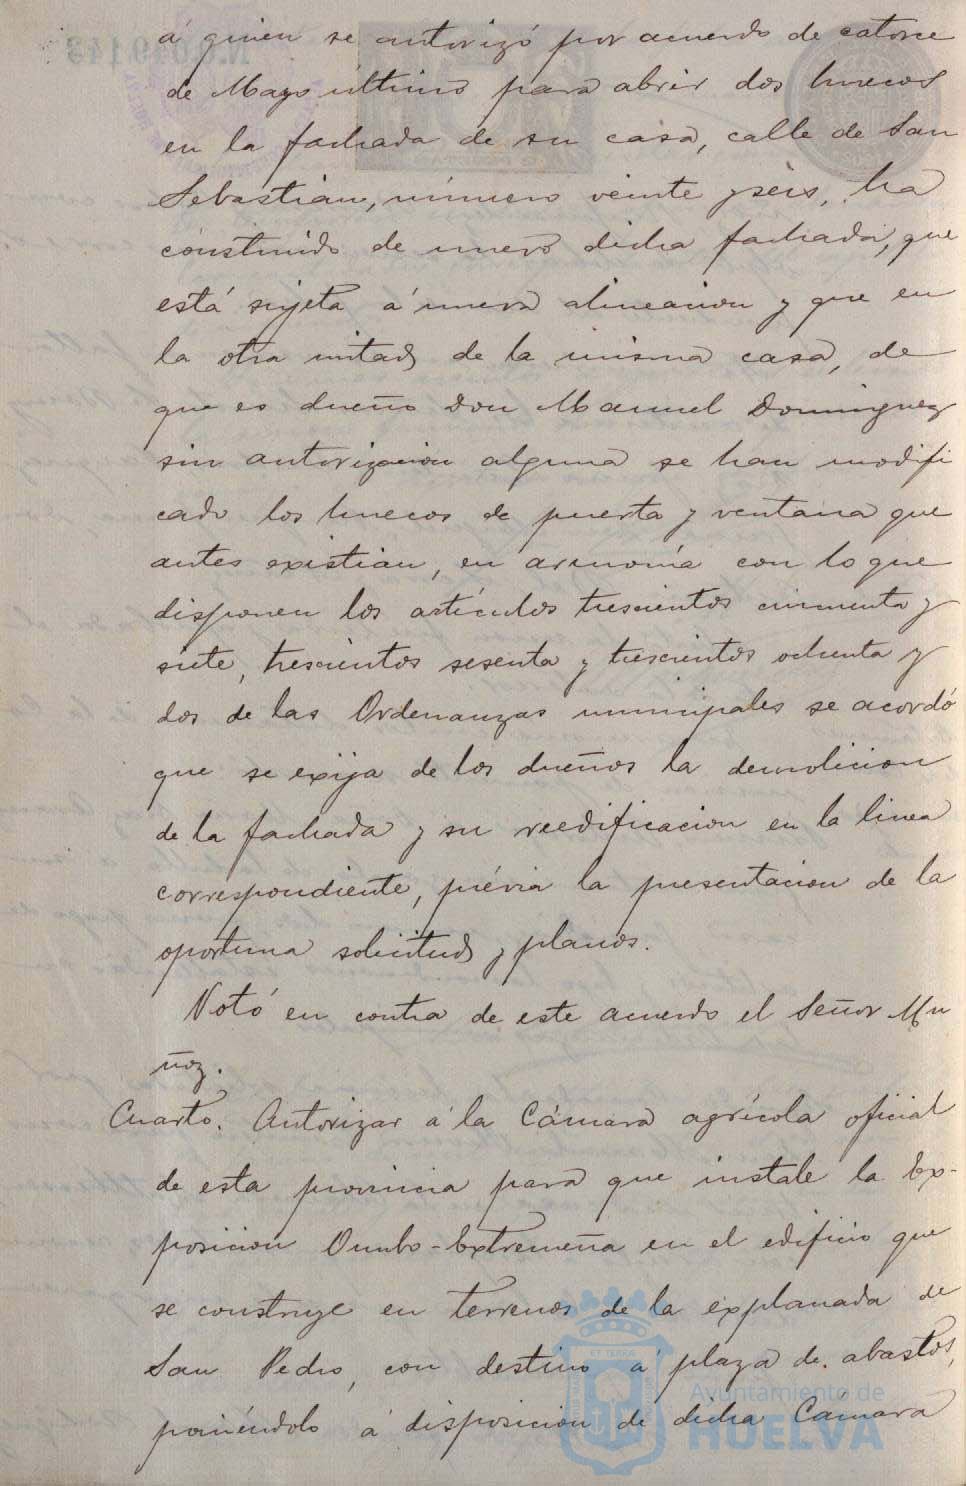 á quien se autorizó por acuerdo de catorce
de Mayo último para abrir dos huecos
en la fachada de su casa, calle de San
Sebastian, número veinte y seis, ha
construido de nuevo dicha fachada, que
está sujeta á nueva alineacion y que en
la otra mitad de la misma casa, de
que es dueño Don Manuel Dominguez
sin autorizacion alguna se han modifi
cado los huecos de puerta y ventana que
antes existian, en armonía con lo que
disponen los artículos trescientos cincuenta y
siete, trescientos sesenta y trescientos ochenta y
dos de las Ordenanzas municipales se acordó
que se exija de los dueños la demolicion
de la fachada y su reedificacion en la linea
correspondiente, prévia la presentacion de la
oportuna solicitud y planos.
Votó en contra de este acuerdo el Señor Mu
ñoz.
Cuarto. Autorizar á la Cámara agrícola oficial
de esta provincia para que instale la Ex-
posicion Onubo-Extremeña en el edificio que
se construye en terrenos de la explanada de
San Pedro, con destino á plaza de abastos,
poniéndolo á disposicion de dicha Cámara
Ayuntamiento de
HUELVA